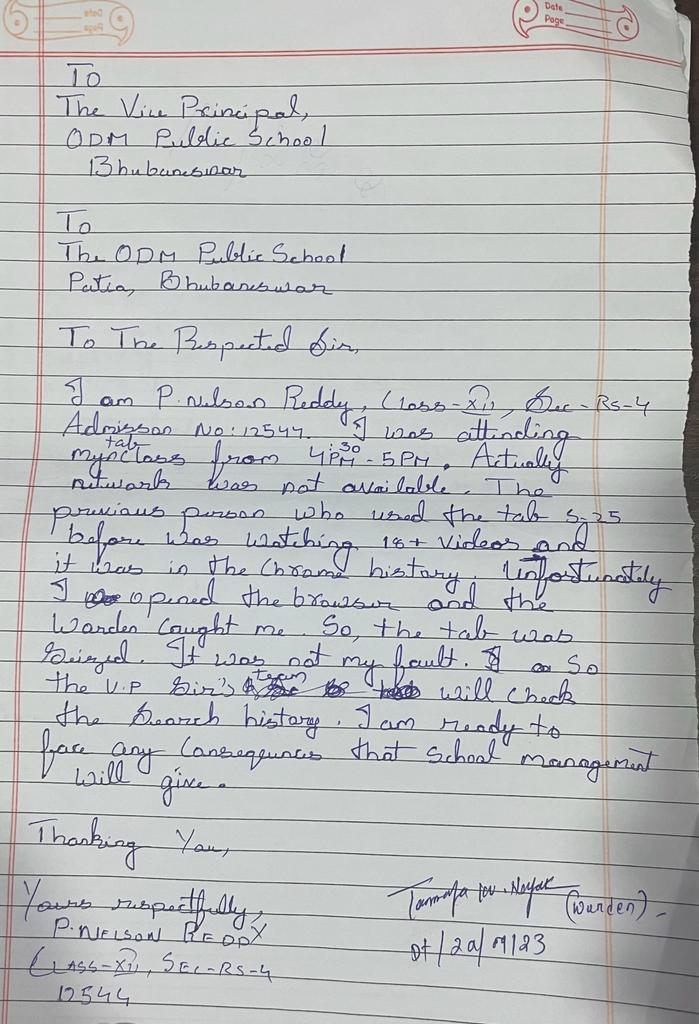 Date
Page
To
The Vice Principal,
ODM Public School
Bhubaneswar
To
The ODM Public School
Patia, Bhubaneswar
To The Respected Sir,
I am P. Nelson Reddy, Class-XII, Sec-RS-4
Admisson No: 12544. I was attending
my tab class from 4:30 PM - 5PM. Actually
network was not available. The
previous person who used the tab S-25
before was watching 18+ Videos and
it was in the Chrome history. Unfortunately
I opened the browser and the
Warden Caught me. So, the tab was
Seized. It was not my fault. So
the V.P Sir's team will check
the Search history. I am ready to
face any Consequences that School management
will give.
Thanking You,
Yours respectfully,
P. NELSON REDDY
CLASS-XII, SEC-RS-4
12544
Nayak (Warden)